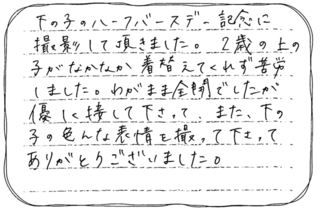 下の子のハーフバースデー記念に
撮影して頂きました。2歳の上の
子がなかなか着替えてくれず苦労
しました。わがまま全開でしたが
優しく接して下さって、また、下の
子の色んな表情を撮って下さって
ありがとうございました。